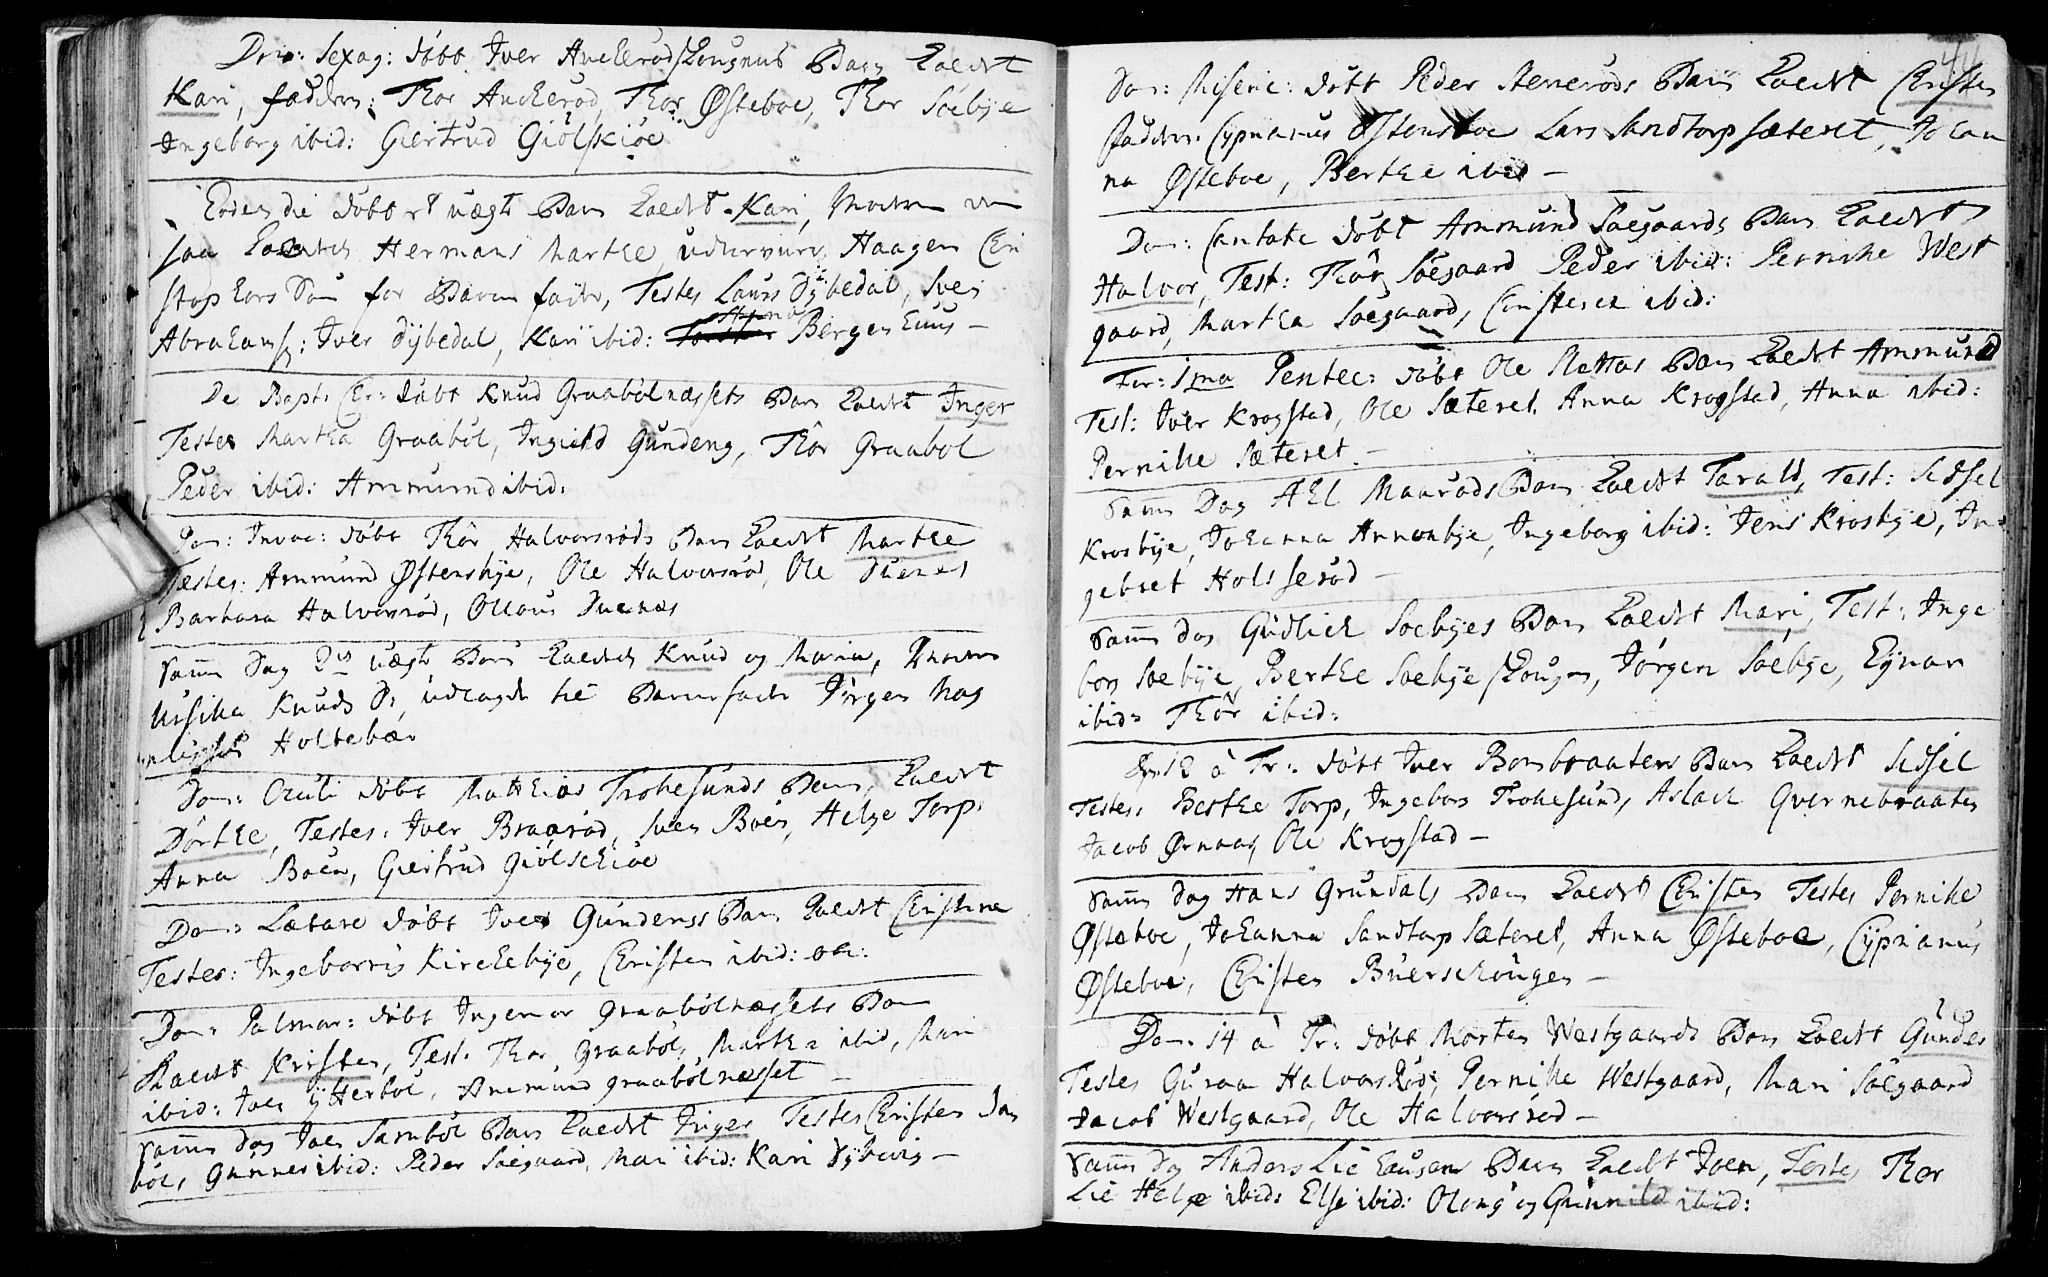 Dom: Sexag: døbt Iver Hucherød schougnus Barn kaldt
Kari, faddere: Thor Anckerød, Thor Østeboe, Thor Søebye
Ingeborg ibid: Giertrud Giølskiøe
Eodem die døbt et uægte Barn kaldt Kari, Moderen
saa kaldet Hermans Marthe, udlervuris Haagen Chri
stophers Søn for Barne fader, Testes Laurs Dybedal, Sven
Abrahams: Iver Dybedal, Kari ibid: Anna Bergerhuus –
De Bapt: Chr: døbt Knud Graabølnæssets Barn kaldt Inger
Testes Martha Graabøl, Ingield Gundeng, Thor Graabøl
Peder ibid: Ammund ibid:
Dom: Invoc: døbt Thor Halvorsrøds Barn kaldt Marthe
Testes: Ammund Østenskye, Ole Halvorsrød, Ole Duenes
Barbara Halvorsrød, Ollous Duenæs
Samme Dag 2de uægte Børn kaldet Knud og Maria, Moderen
Ursilla Knuds D: udlagde til Barnefader Jørgen Mag
nussen Holtebær
Dom: Oculi døbt Mathias Trohesunds Barn, kaldt
Dorthe, Testes: Iver Braarød, Sven Boen, Helge Torp:
Anna Boen, Giertrud Giølschiøe
Dom: Lætare døbt Iver Gundenss Barn kaldt Christine
Testes: Ingeborris Kirchebye, Christen ibid: etc:
Dom: Palmar: døbt Ingemor Graabølnæssets Barn
kaldt Kristen, Test. Thor Graabøl, Martha ibid, Mari
ibid: Iver Ytterbøl, Ammund Graabølnæsset –
Samme dag Iver Sarnbøl Barn kaldt Inger Testes Christen Sarn
bøl, Gunner ibid: Peder Søegaard, Mari ibid: Kari Dybvig –
44
Dom: Miseric: døbt Peder Stenerøds Barn kaldt Christen
faddere. Cyprianus Østensboe Lars Sandtorp sæteret, Johan
na Østeboe, Berthe ibid –
Dom: Cantate døbt Ammund Søegaards Barn kaldt
Halvor, Test: Thor Søegaard Peder ibid: Pernihe West
gaard, Martha Søegaard, Christence ibid:
Fer: 1ma Pentec: døbt Ole Slettas Barn kaldt Ammund
Test: Iver Krogstad, Ole Sæteret, Anna Krogstad, Anna ibid:
Pernihe Sæteret –
Samme Dag Ahl Maarøds Barn kaldt Tarald, Test: Sidsel
Krosbye, Johanna Annonbye, Ingeborg ibid: Jens Krosbye, In
gebret Holsserød –
Samme dag Gudlich Søebyes Barn kaldt Mari, Test: Inge
borg Søebye Berthe Søebye schougen, Jørgen Søebye, Eynar
ibid: Thor ibid:
Dom: 12 à Tr: døbt Iver Bornbraatens Barn kaldt Sidsel
Testes: Berthe Torp, Ingeborg Trohesund, Aslach Qvernebraaten
Jacob Ørnaas, Ole Krogstad –
Samme dag Hans Grundals Barn kaldt Christen Testes Pernihe
Østeboe, Johanna Sandtorp Sæteret, Anna Østeboe, Cyprianus
Østeboe, Christen Buerschougen –
Dom. 14 à Tr: døbt Morten Westgaards Barn kaldt Gunder
Testes Guraa Halvorsrød, Pernihe Westgaard, Mari Søegaard
Jacob Westgaard, Ole Halvorsrød –
Samme dag Anders Lie hausens Barn kaldt Iven, Testes Thor
Lie Helge ibid: Else ibid: Olong og Gunnild ibid: